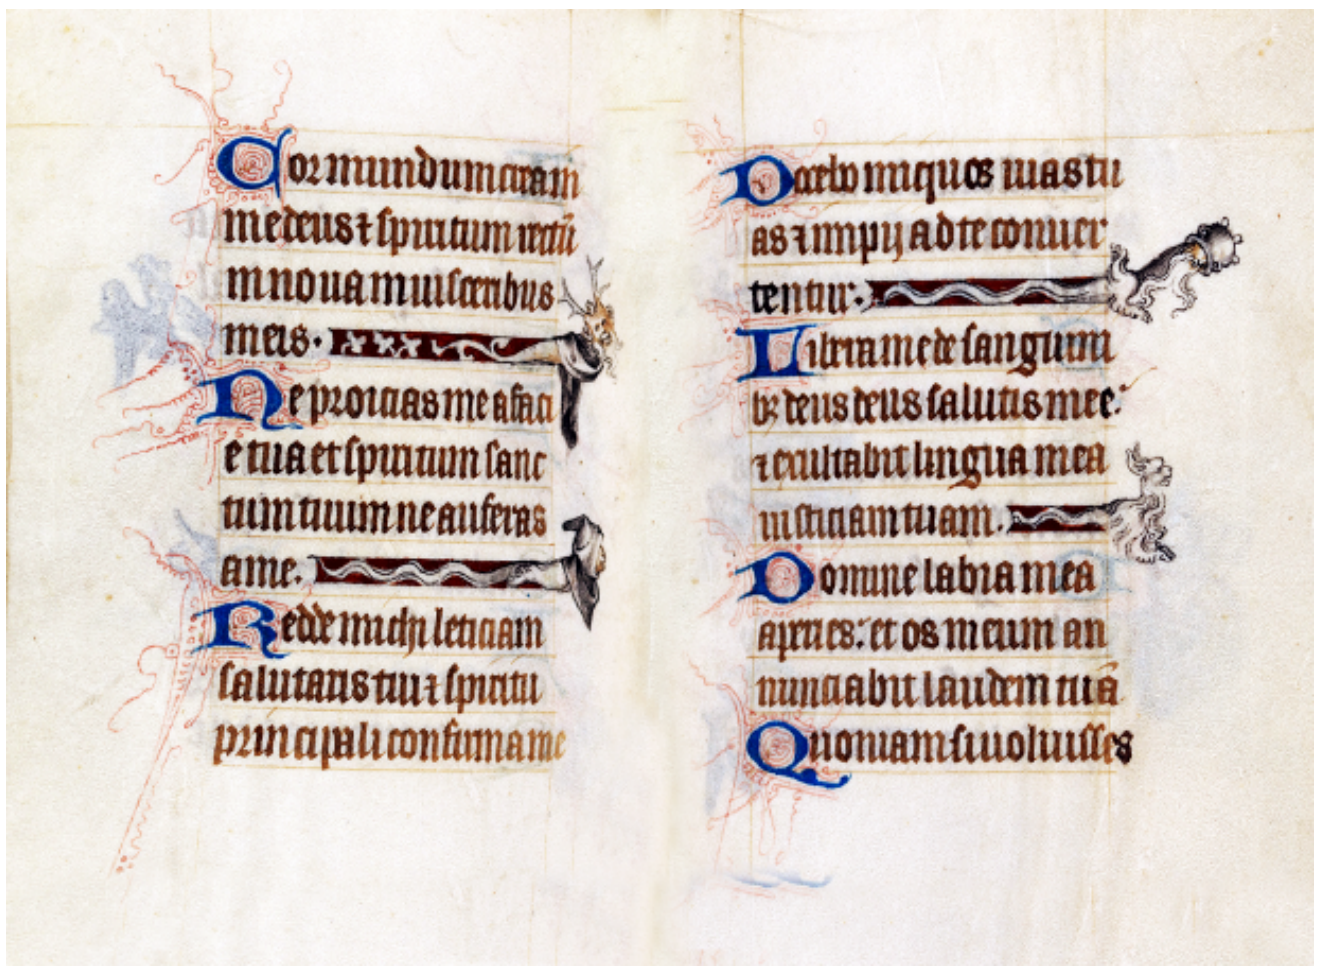 Cor mundum crea in
me deus ⁊ spiritum rectū
innoua in uisceribus
meis.
Ne proicias me a faci
e tua et spiritum sanc
tum tuum ne auferas
a me.
Redde michi leticiam
salutaris tui ⁊ spiritu
principali confirma me
Docebo iniquos uias tu
as ⁊ impij ad te conuer
tentur.
Libera me de sanguini
bꝫ deus deus salutis mee:
⁊ exultabit lingua mea
iusticiam tuam.
Domine labia mea
aperies: et os meum an
nunciabit laudem tuā
Quoniam si uoluisses